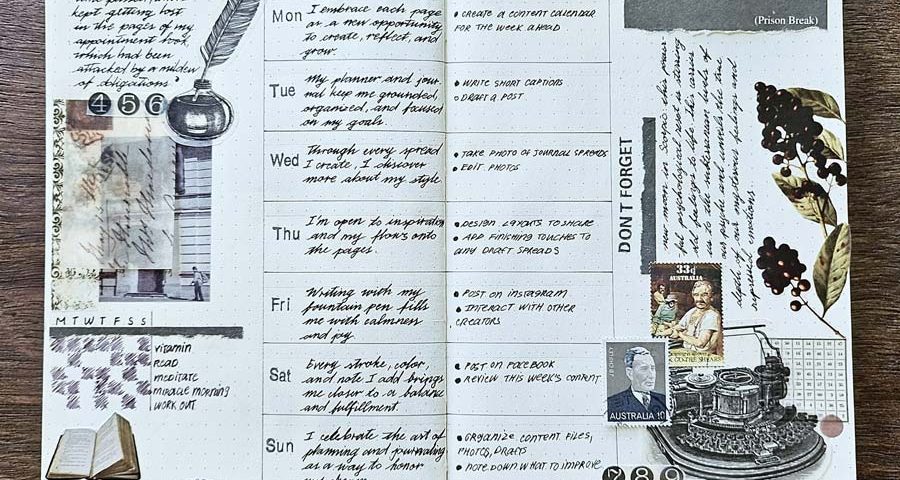 kept getting lost
in the pages of my
appointment book,
which had been
attacked by a
of obligations
4 5 6
M T W T F S S
vitamin
READ
meditate
miracle morning
WORK OUT
Mon
I embrace each page
as a new opportunity
to create, reflect, and
grow.
• CREATE A CONTENT CALENDAR
FOR THE WEEK AHEAD
Tue
My planner and jour-
nal keep me grounded,
organized, and focused
on my goals.
• WRITE SHORT CAPTIONS
○ DRAFT A POST
Wed
Through every spread
I create, I discover
more about my style.
• TAKE PHOTO OF JOURNAL SPREADS
• EDIT PHOTOS
Thu
I'm open to inspiration
and my flows onto
the pages.
• DESIGN LAYOUTS TO SHARE
• ADD FINISHING TOUCHES TO
ANY DRAFT SPREADS
Fri
Writing with my
fountain pen fills
me with calmness
and joy.
• POST ON INSTAGRAM
• INTERACT WITH OTHER
CREATORS
Sat
Every stroke, color,
and note I add brings
me closer to a balance
and fulfillment.
• POST ON FACEBOOK
• REVIEW THIS WEEK'S CONTENT
Sun
I celebrate the art of
planning and journaling
as a way to honor
• ORGANIZE CONTENT FILES,
PHOTOS, DRAFTS
• NOTE DOWN WHAT TO IMPROVE
(Prison Break)
DON'T FORGET
new moon in Scorpio this
psychological reset is stirring
helps to be this carries
us to the subterranean levels of
psyche and unveils the true
depth of our mysterious feelings and
repressed emotions.
33c
AUSTRALIA
AUSTRALIA 10
7 8 9